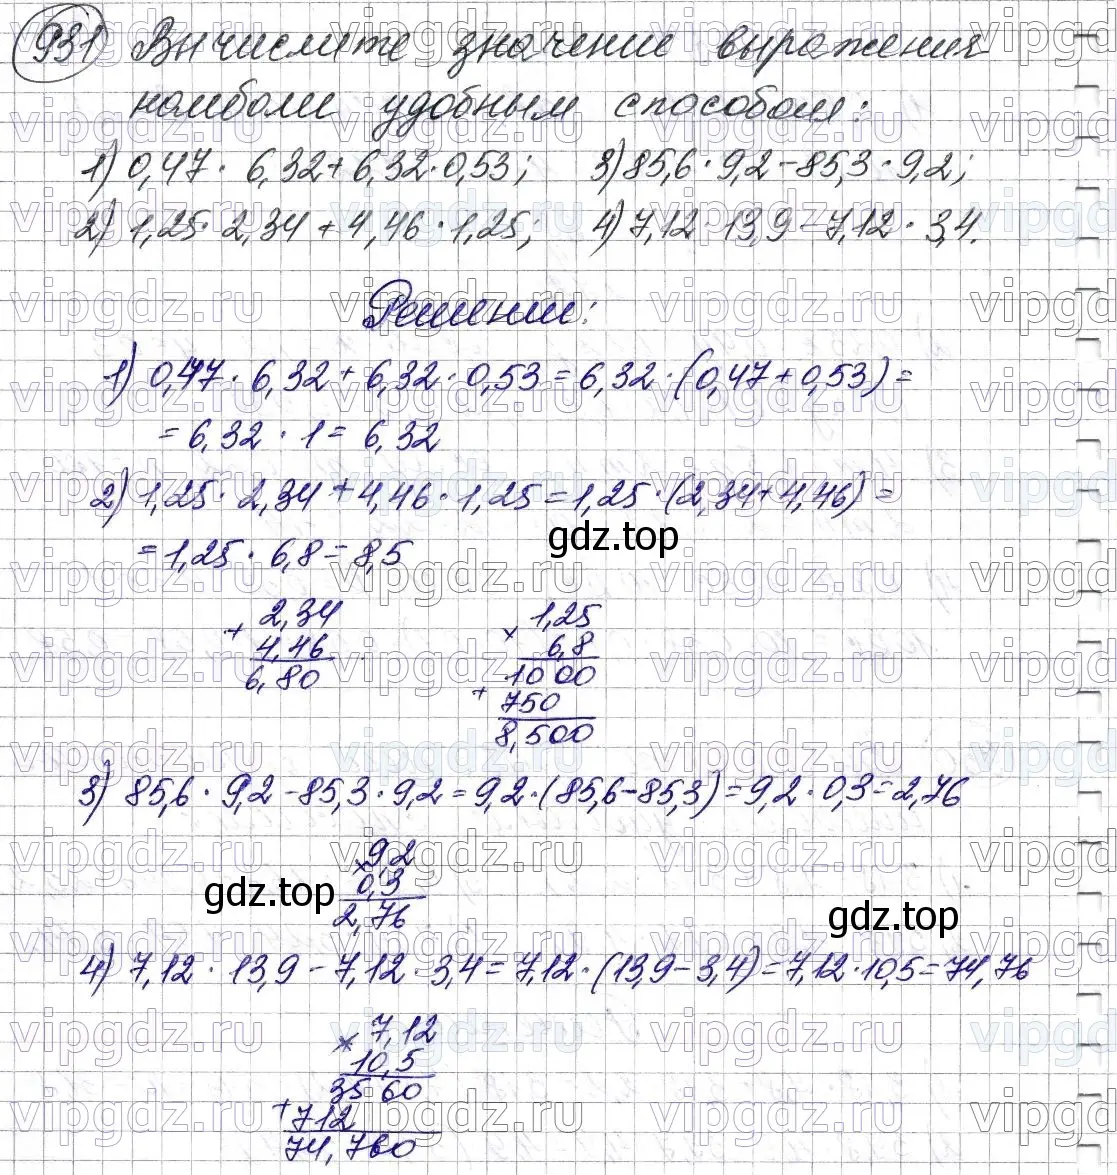 931 Вычислите значение выражения
наиболее удобным способом:
1) 0,47 · 6,32 + 6,32 · 0,53; 3) 85,6 · 9,2 - 85,3 · 9,2;
2) 1,25 · 2,34 + 4,46 · 1,25; 4) 7,12 · 13,9 - 7,12 · 3,4.
Решение:
1) 0,47 · 6,32 + 6,32 · 0,53 = 6,32 · (0,47 + 0,53) =
= 6,32 · 1 = 6,32
2) 1,25 · 2,34 + 4,46 · 1,25 = 1,25 · (2,34 + 4,46) =
= 1,25 · 6,8 = 8,5
gdz.top
+ 2,34
4,46
6,80
× 1,25
6,8
1000
+ 750
8,500
3) 85,6 · 9,2 - 85,3 · 9,2 = 9,2 · (85,6 - 85,3) = 9,2 · 0,3 = 2,76
× 9,2
0,3
2,76
gdz.top
gdz.top
4) 7,12 · 13,9 - 7,12 · 3,4 = 7,12 · (13,9 - 3,4) = 7,12 · 10,5 = 74,76
× 7,12
10,5
3560
+ 712
74,760